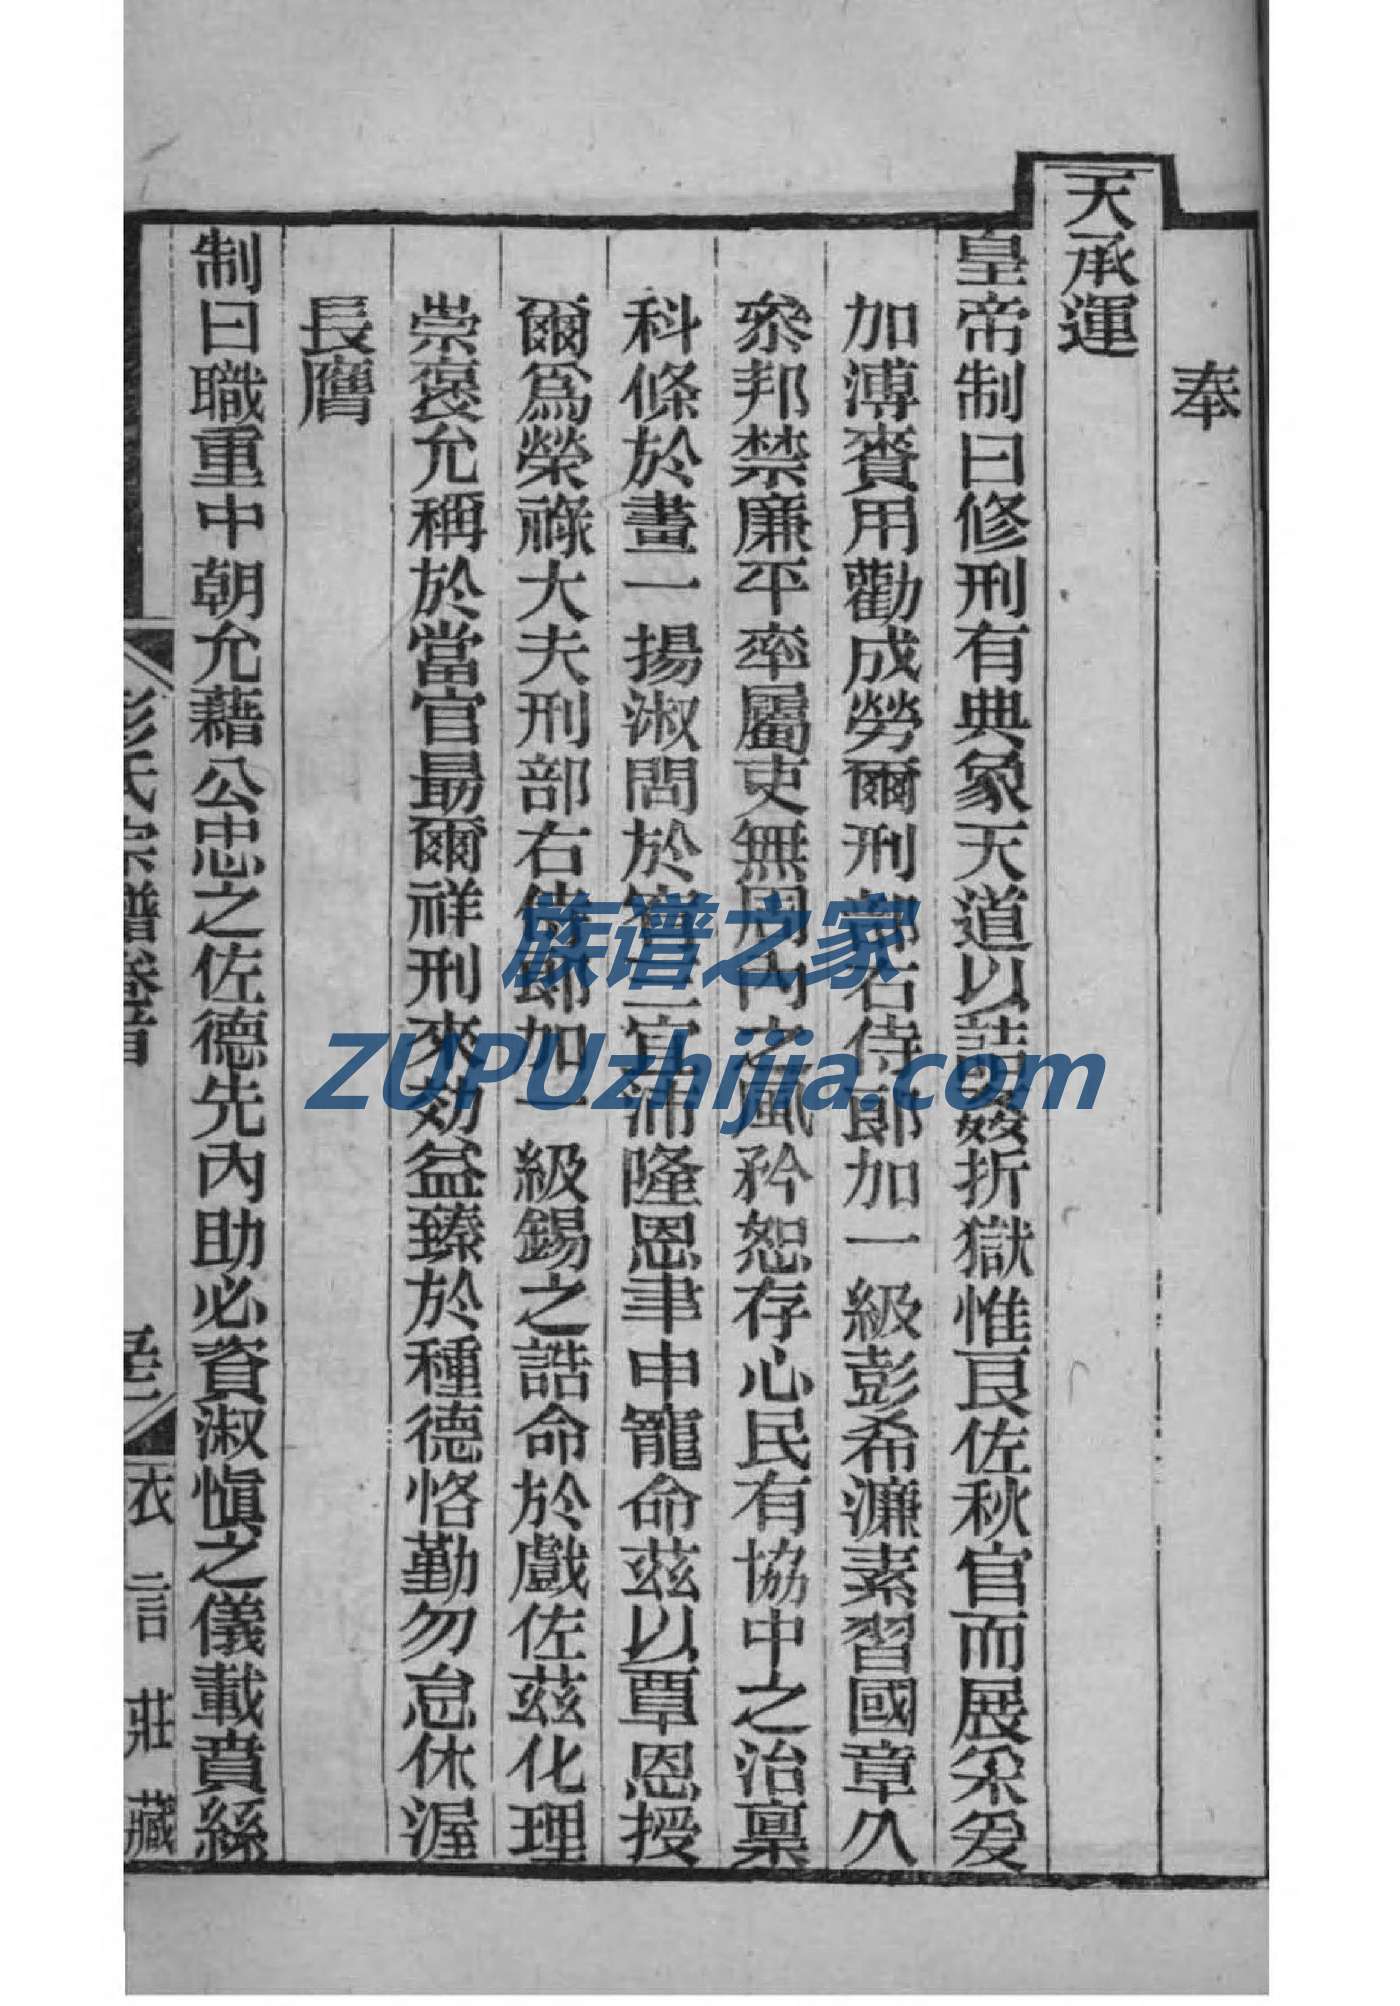 奉
天承運
皇帝制曰修刑有典象天道以詰姦折獄惟良佐秋官而展采爰
加溥賚用勸成勞爾刑部右侍郎加一級彭希濂素習國章久
叅邦禁廉平率屬吏無周內之風矜恕存心民有協中之治稟
科條於畫一揚淑問於實三宜沛隆恩聿申寵命茲以覃恩授
爾爲榮祿大夫刑部右侍郎加一級錫之誥命於戲佐茲化理
崇襃允稱於當官最爾祥刑來効益臻於種德恪勤勿怠休渥
長膺
制曰職重中朝允藉公忠之佐德先內助必資淑愼之儀載賁絲
彭氏宗譜卷首
衣言莊藏
族谱之家
ZUPUzhijia.com